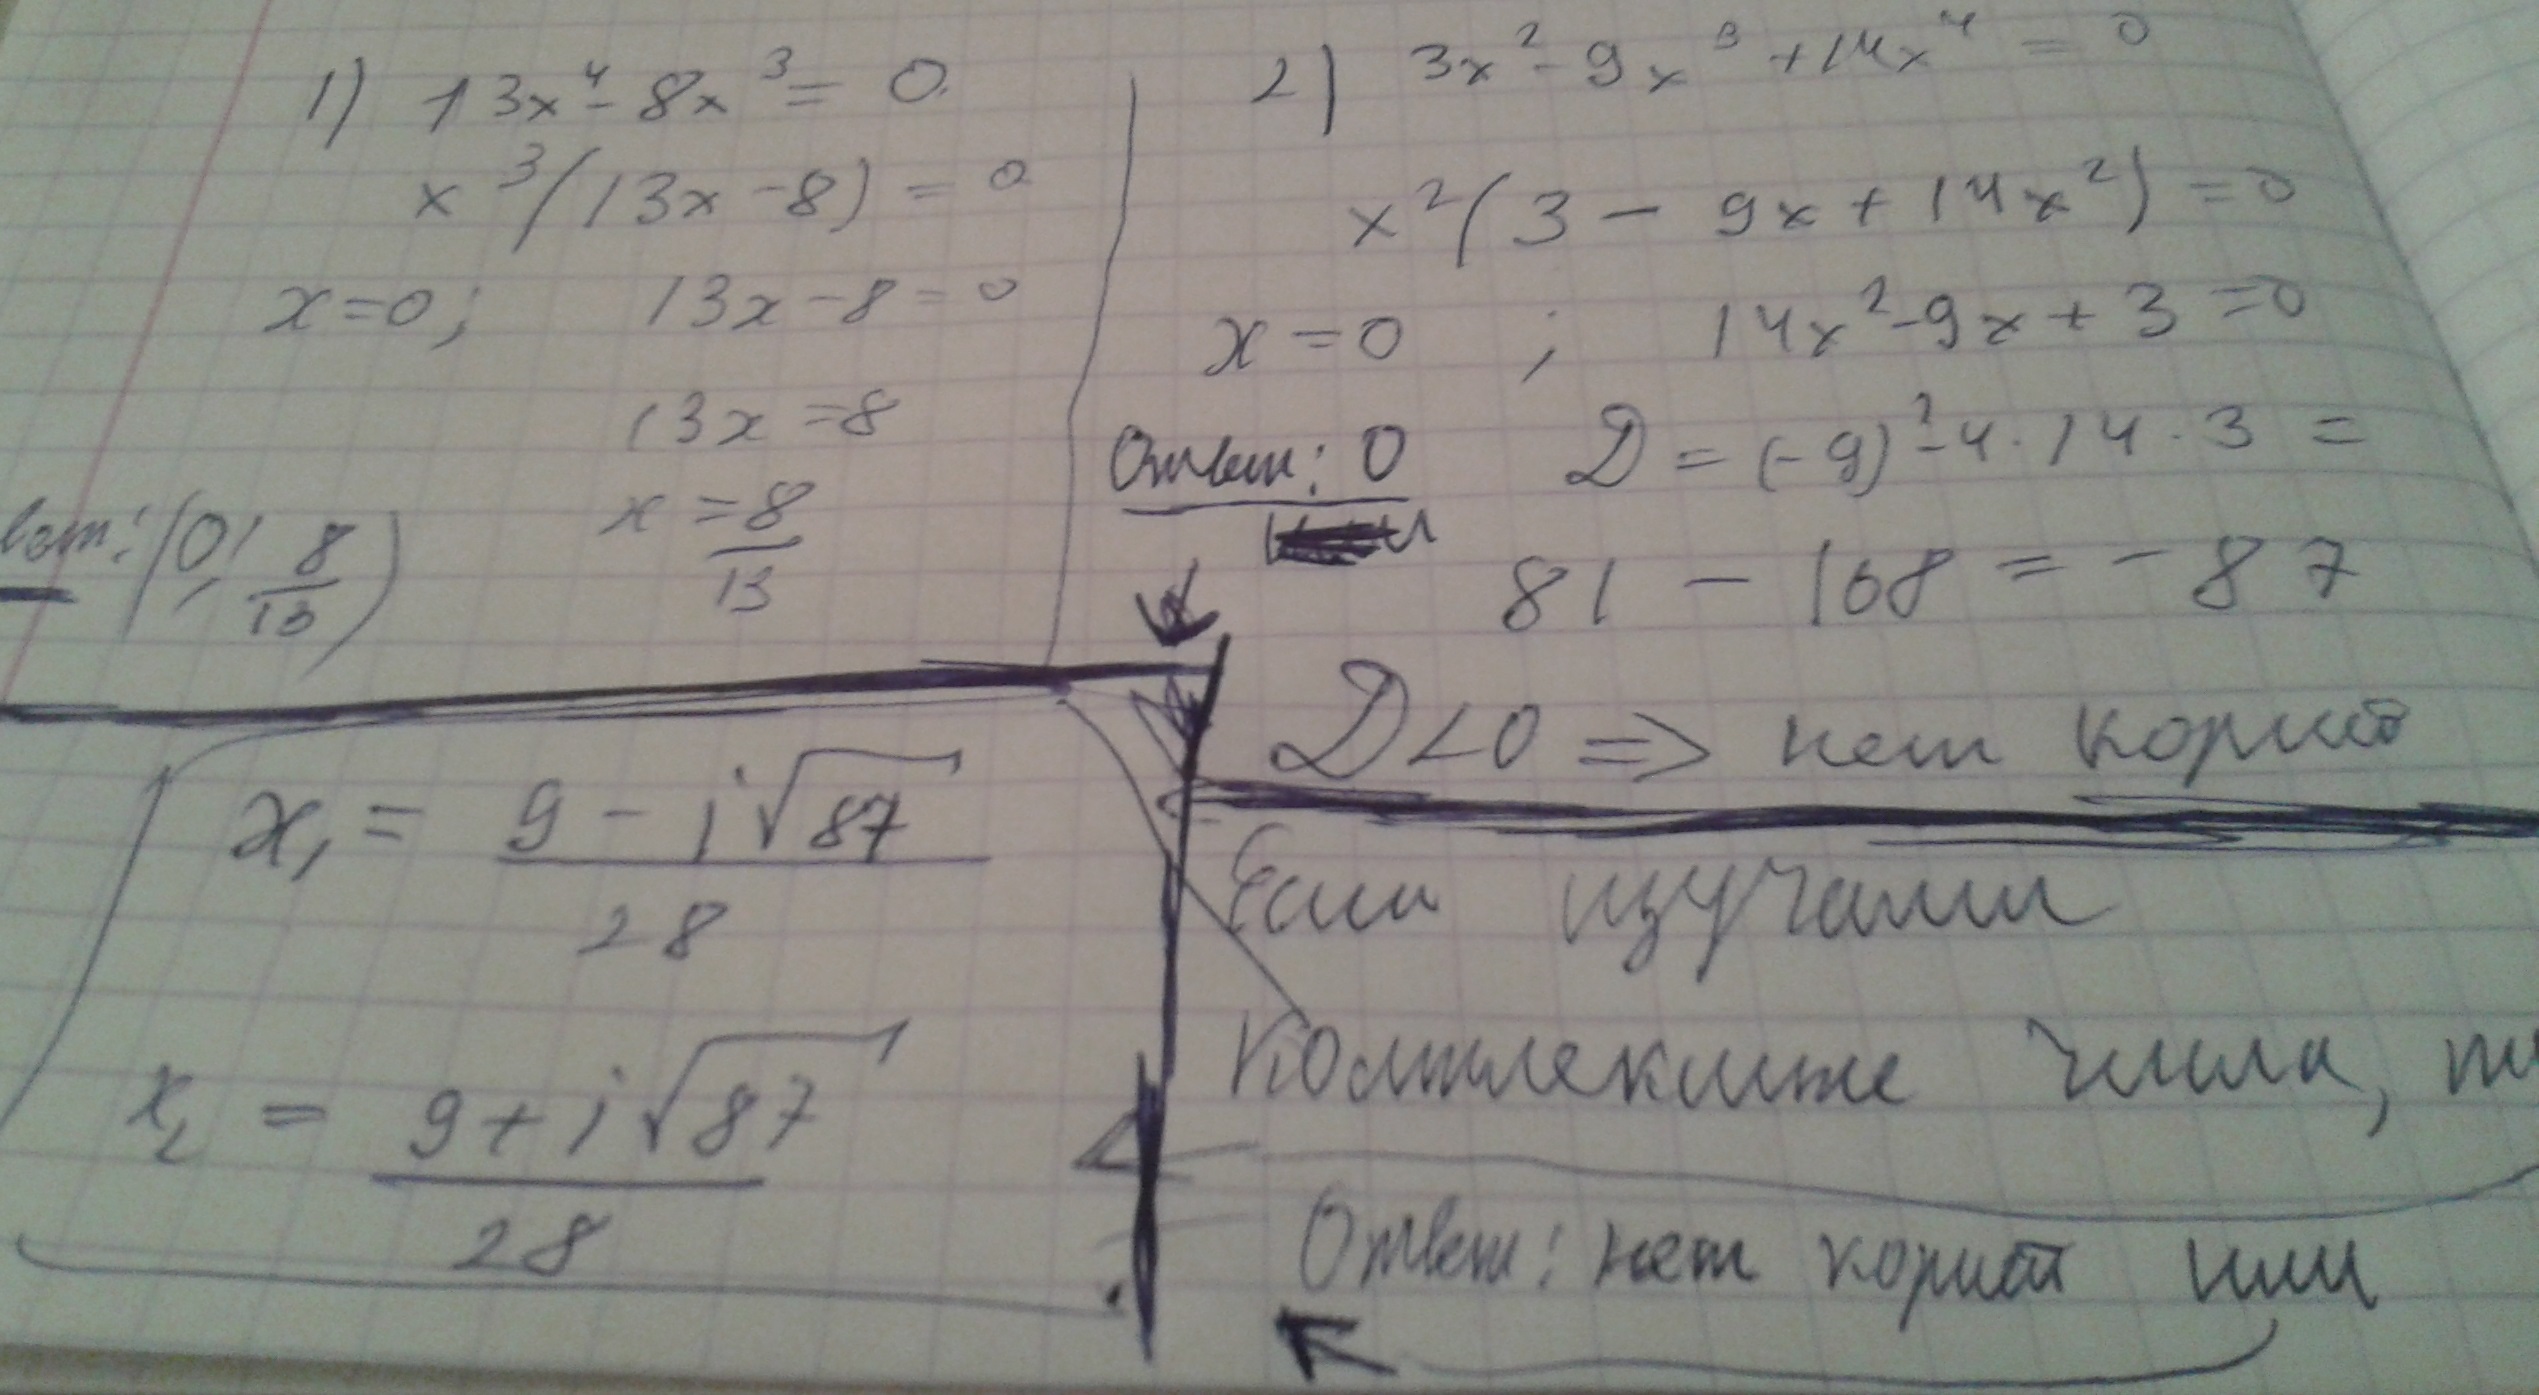 1) 13x⁴ - 8x³ = 0
x³(13x - 8) = 0
x = 0; 13x - 8 = 0
13x = 8
x = 8/13
вет: (0; 8/13)
2) 3x² - 9x³ + 14x⁴ = 0
x²(3 - 9x + 14x²) = 0
x = 0 ; 14x² - 9x + 3 = 0
Ответ: 0
D = (-9)² - 4 · 14 · 3 =
81 - 168 = -87
D < 0 => нет корней
x₁ = (9 - i√87)/28
x₂ = (9 + i√87)/28
Если изучали
комплексные числа, т
Ответ: нет корней или